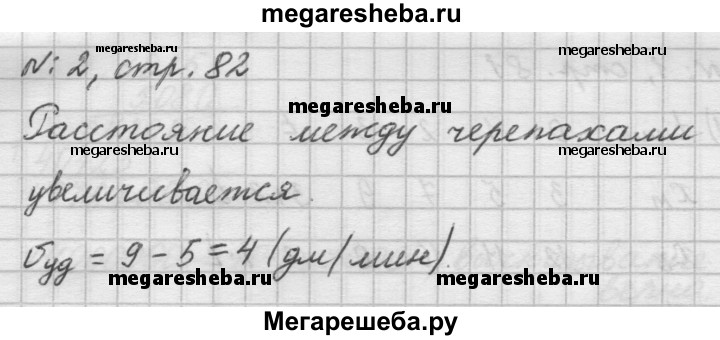 megaresheba.ru
№ 2, стр. 82
megaresheba.ru
megaresheba.ru
megaresheba.ru
Расстояние между черепахами
megaresheba.ru
megaresheba.ru
увеличивается.
υуд = 9 - 5 = 4 (дм/мин).
megaresheba.ru
megaresheba.ru
Мегарешеба.ру